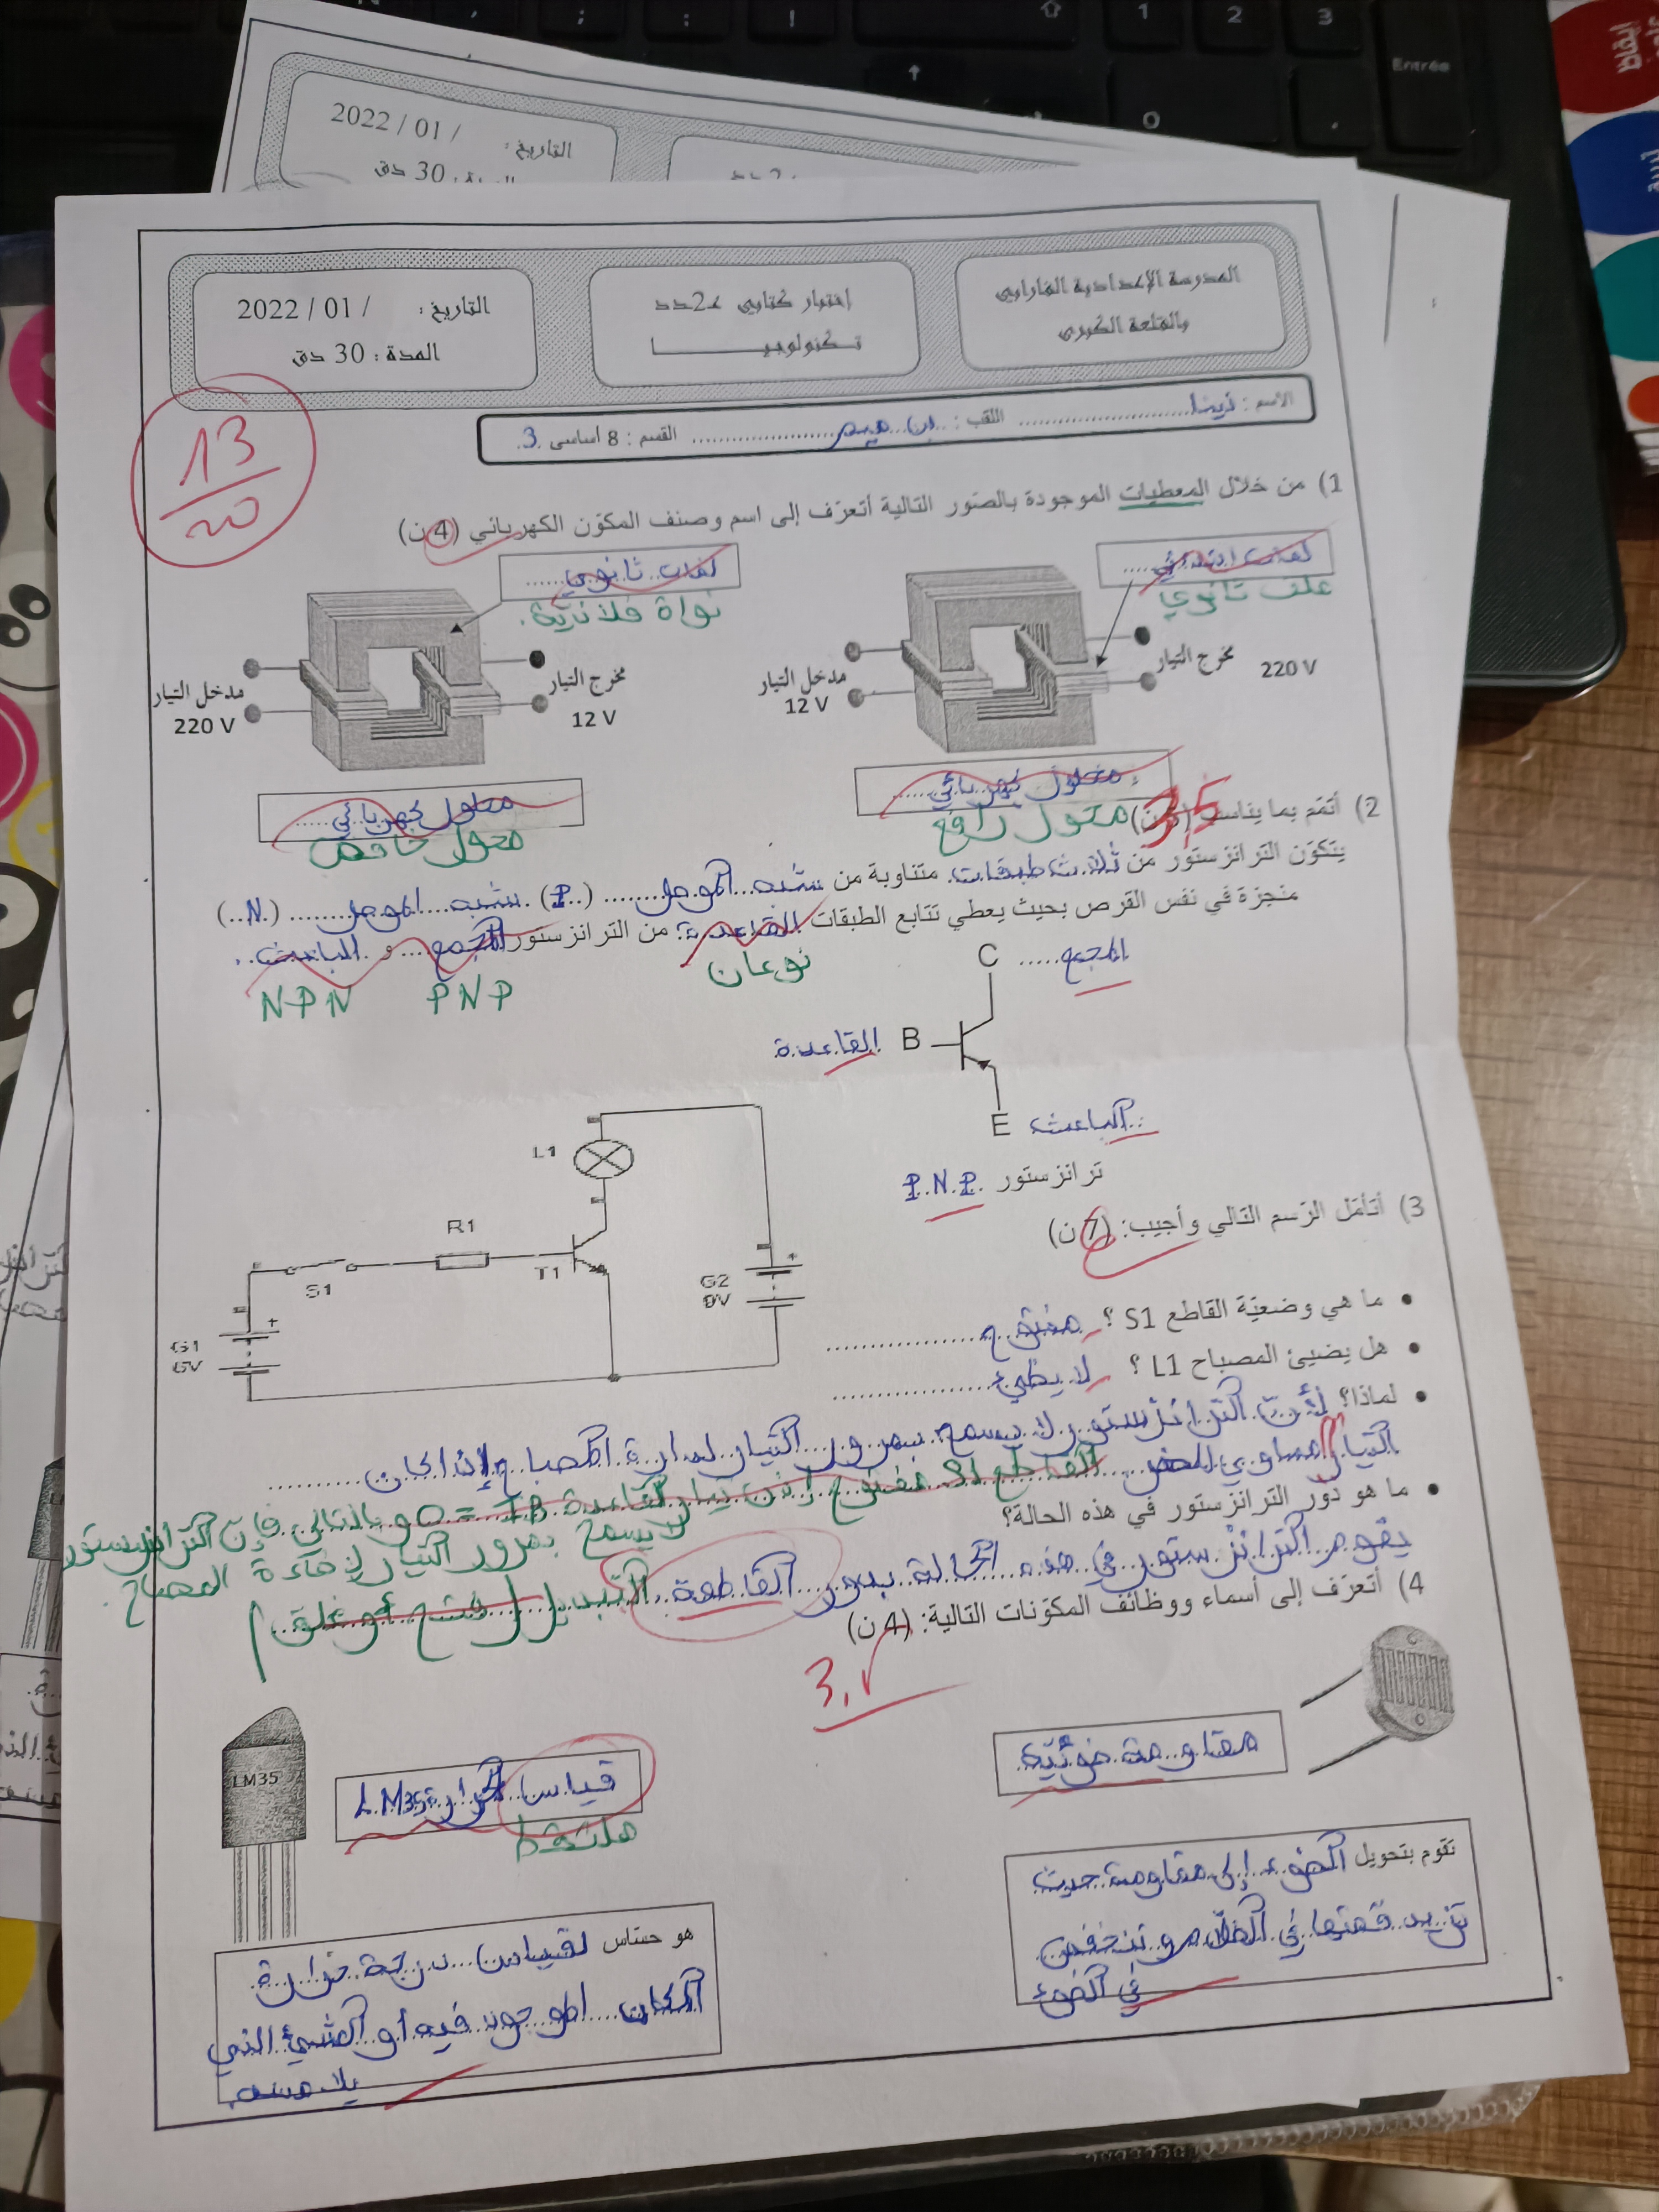 2022 / 01 /
التاريخ :
30 دق
Entrée
المدرسة الإعدادية الفارابي
بالقلعة الكبرى
إختبار كتابي عـ2ـدد
تـكنولوجيـــــــا
التاريخ : / 01 / 2022
المدة : 30 دق
13
20
الاسم : ............ اللقب : بن ............ القسم : 8 أساسي 3
1) من خلال المعطيات الموجودة بالصّور التالية أتعرّف إلى اسم وصنف المكوّن الكهربائي (4ن)
لفات ثانوي
نواة فلاذيّة.
علف ثانوي
مدخل التيار
220 V
مخرج التيار
12 V
مدخل التيار
12 V
مخرج التيار
220 V
محول كهربائي
محول خافض
محول كهربائي
محول رافع
3,5
2) أتمّم بما يناسب
يتكوّن الترانزستور من ثلاث طبقات متناوبة من شبه الموصل (P) شبه الموصل (N)
منجزة في نفس القرص بحيث يعطي تتابع الطبقات القاعدة من الترانزستور المجمع و الباعث
نوعان
PNP
NPN
C المجمع
القاعدة B
E الباعث
ترانزستور P.N.P
3) أتأمّل الرّسم التالي وأجيب: (7ن)
L1
R1
S1
T1
G1
6V
G2
9V
• ما هي وضعيّة القاطع S1 ؟ مفتوح
• هل يضيئ المصباح L1 ؟ لا يظيء
• لماذا؟ لأنّ الترانزستور لا يسمح بمرور التيار لدارة المصباح إذا كان
التيار مساوي للصفر
القاطع S1 مفتوح إذن تيار القاعدة IB = 0 وبالتالي فإنّ الترانزستور
لا يسمح بمرور التيار لإضاءة المصباح.
• ما هو دور الترانزستور في هذه الحالة؟
يقوم الترانزستور في هذه الحالة بدور القاطعة
التبديل (فتح أو غلق)
4) أتعرّف إلى أسماء ووظائف المكوّنات التالية: (4ن)
LM35
قياس الحرارة LM35
ملتقط
مقاومة ضوئيّة
تقوم بتحويل الضوء إلى مقاومة حيث
تزيد قمتها في الظلام و تنخفض
في الضوء
هو حسّاس لقياس درجة حرارة
المكان الموجود فيه أو الشيئ الذي
يلامسه.